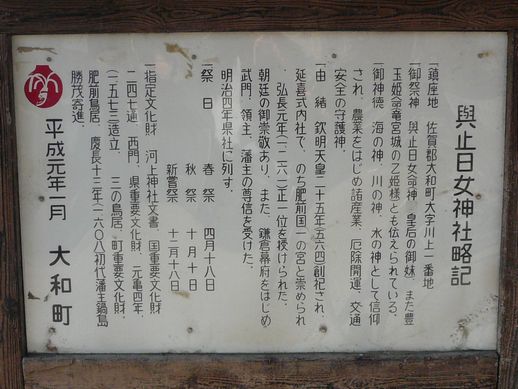 與止日女神社略記
一、鎮座地 佐賀郡大和町大字川上一番地
一、御祭神 與止日女命神、皇后の御妹、また豊
玉姫命竜宮城の乙姫様とも伝えられている。
一、御神徳 海の神、川の神、水の神として信仰
され、農業をはじめ諸産業、厄除開運、交通
安全の守護神。
一、由緒 欽明天皇二十五年(五六四)創祀され、
延喜式内社で、のち肥前国一の宮と崇められ
、弘長元年(一二六一)正一位を授けられた。
朝廷の御崇敬あり、また、鎌倉幕府をはじめ
武門、領主、藩主の尊信を受けた。
明治四年県社に列す。
一、祭日 春祭 四月十八日
秋祭 十月十日
新嘗祭 十二月十八日
一、指定文化財 河上神社文書、国重要文化財、
二四七通、西門、県重要文化財、元亀四年、
(一五七三)造立、三の鳥居、町重要文化財、
肥前鳥居 慶長十三年(一六〇八)初代藩主鍋島
勝茂寄進。
平成元年一月 大和町